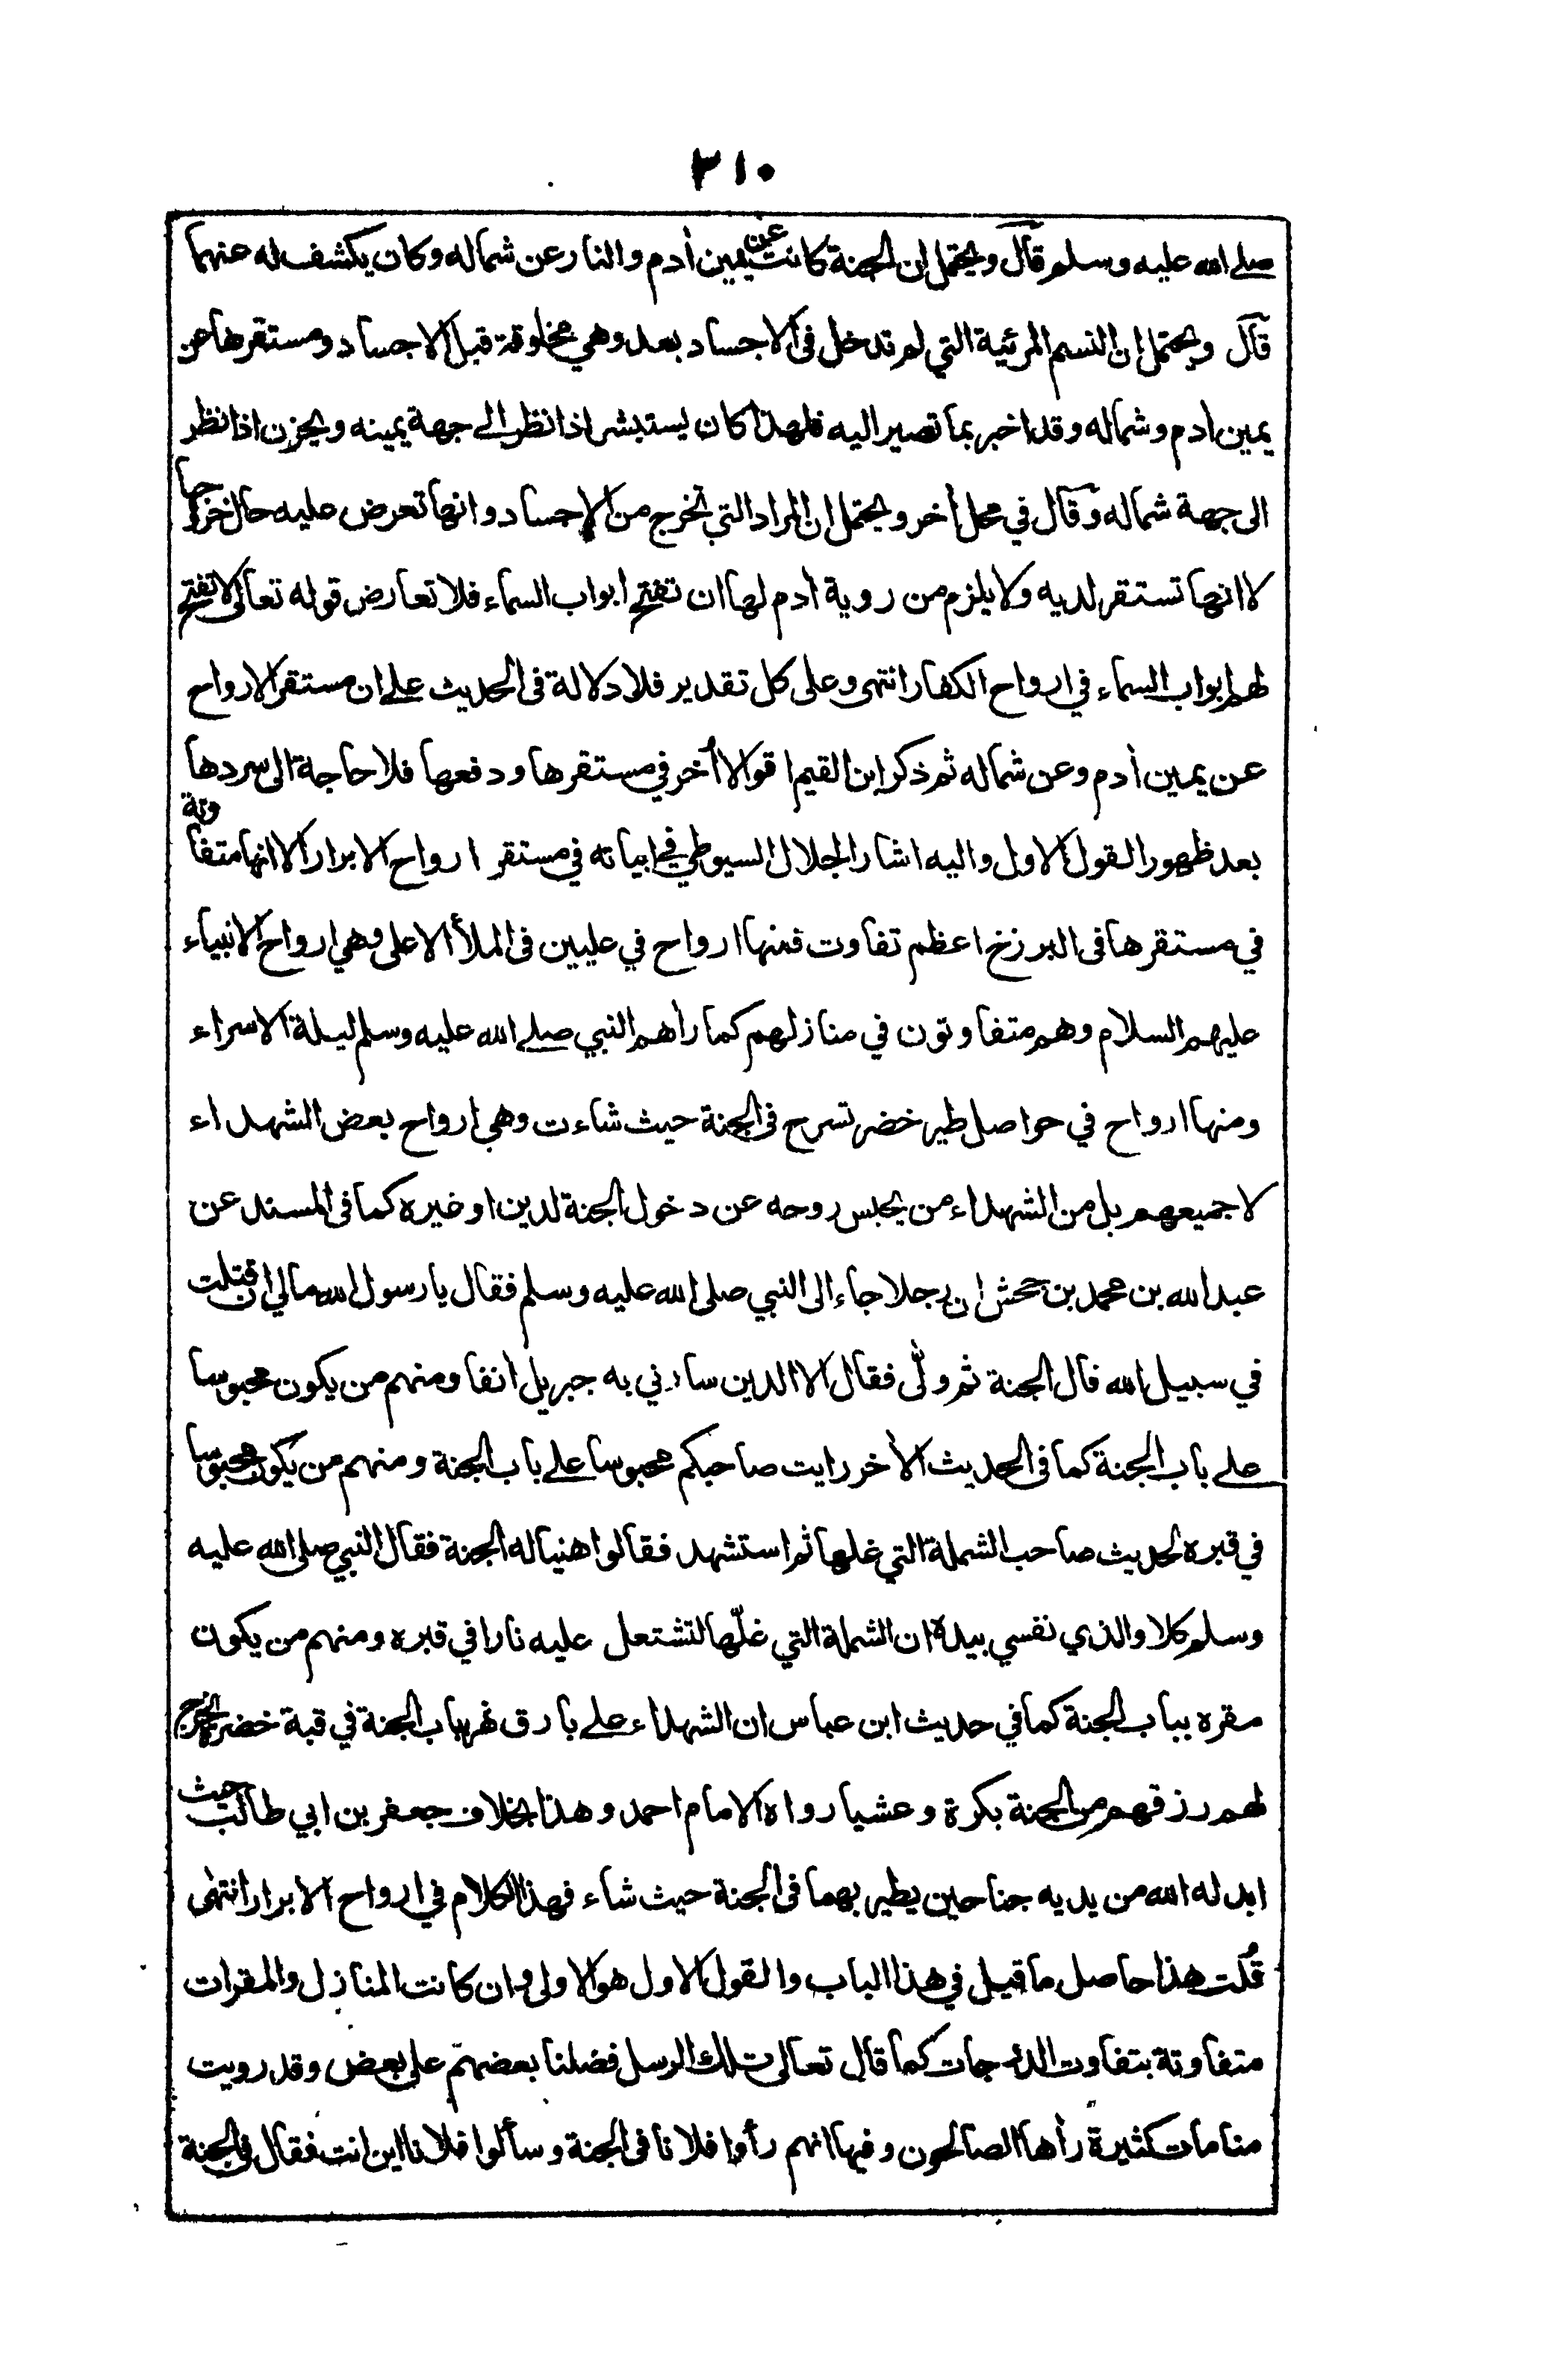 ٣١٠
صلے الله عليه وسلم قال ويحتمل ان الجنة كانت عن يمين أدم والنار عن شماله وكان يكشف له عنهما
قال ويحتمل ان النسم المرئية التي لم تدخل فى الاجساد بعد وهي مخلوقة قبل الاجساد ومستقرها عن
يمين ادم وشماله وقد اخبر بما تصير اليه فلهذا كان يستبشر اذا نظر الے جهة يمينه ويحزن اذا نظر
الى جهة شماله وقال في محل أخر ويحتمل ان المراد التي تخرج من الاجساد وانها تعرض عليه حال خروجها
لا انها تستقر لديه ولا يلزم من روية أدم لها ان تفتح ابواب السماء فلا تعارض قوله تعالى لا تفتح
لهم ابواب السماء في ارواح الكفار انتهى وعلى كل تقدير فلا دلالة فى الحديث علے ان مستقر الارواح
عن يمين أدم وعن شماله ثم ذكر ابن القيم اقوالا أخر في مستقرها ودفعها فلا حاجة الى سردها
بعد ظهور القول الاول واليه اشار الجلال السيوطي في ابياته في مستقر ارواح الابرار الا انها متفاوتة
في مستقرها فى البرزخ اعظم تفاوت فمنها ارواح في عليين فى الملأ الاعلى وهي ارواح الانبياء
عليهم السلام وهم متفاوتون في منازلهم كما رأهم النبي صلے الله عليه وسلم ليلة الاسراء
ومنها ارواح في حواصل طير خضر تسرح فى الجنة حيث شاءت وهي ارواح بعض الشهداء
لا جميعهم بل من الشهداء من يحبس روحه عن دخول الجنة لدين او غيره كما فى المسند عن
عبد الله بن محمد بن جحش ان رجلا جاء الى النبي صلى الله عليه وسلم فقال يا رسول الله مالي ان قتلت
في سبيل الله قال الجنة ثم ولّى فقال الا الدين سارني به جبريل انفا ومنهم من يكون محبوسا
علے باب الجنة كما فى الحديث الأخر رايت صاحبكم محبوسا علے باب الجنة ومنهم من يكون محبوسا
في قبره لحديث صاحب الشملة التي غلها ثم استشهد فقالوا هنيا له الجنة فقال النبي صلى الله عليه
وسلم كلا والذي نفسي بيده ان الشملة التي غلّها لتشتعل عليه نارا في قبره ومنهم من يكون
مقره بباب الجنة كما في حديث ابن عباس ان الشهداء علے بارق نهر بباب الجنة في قبة خضراء يخرج
لهم رزقهم من الجنة بكرة وعشيا رواه الامام احمد وهذا بخلاف جعفر بن ابي طالب حيث
ابدله الله من يديه جناحين يطير بهما فى الجنة حيث شاء فهذا الكلام في ارواح الابرار انتهى
قلت هذا حاصل ما قيل في هذا الباب والقول الاول هو الاولى وان كانت المنازل والمقرات
متفاوتة بتفاوت الدرجات كما قال تعالى تلك الرسل فضلنا بعضهم على بعض وقد رويت
منامات كثيرة رأها الصالحون وفيها انهم رأوا فلانا فى الجنة وسألوا فلانا اين انت فقال فى الجنة